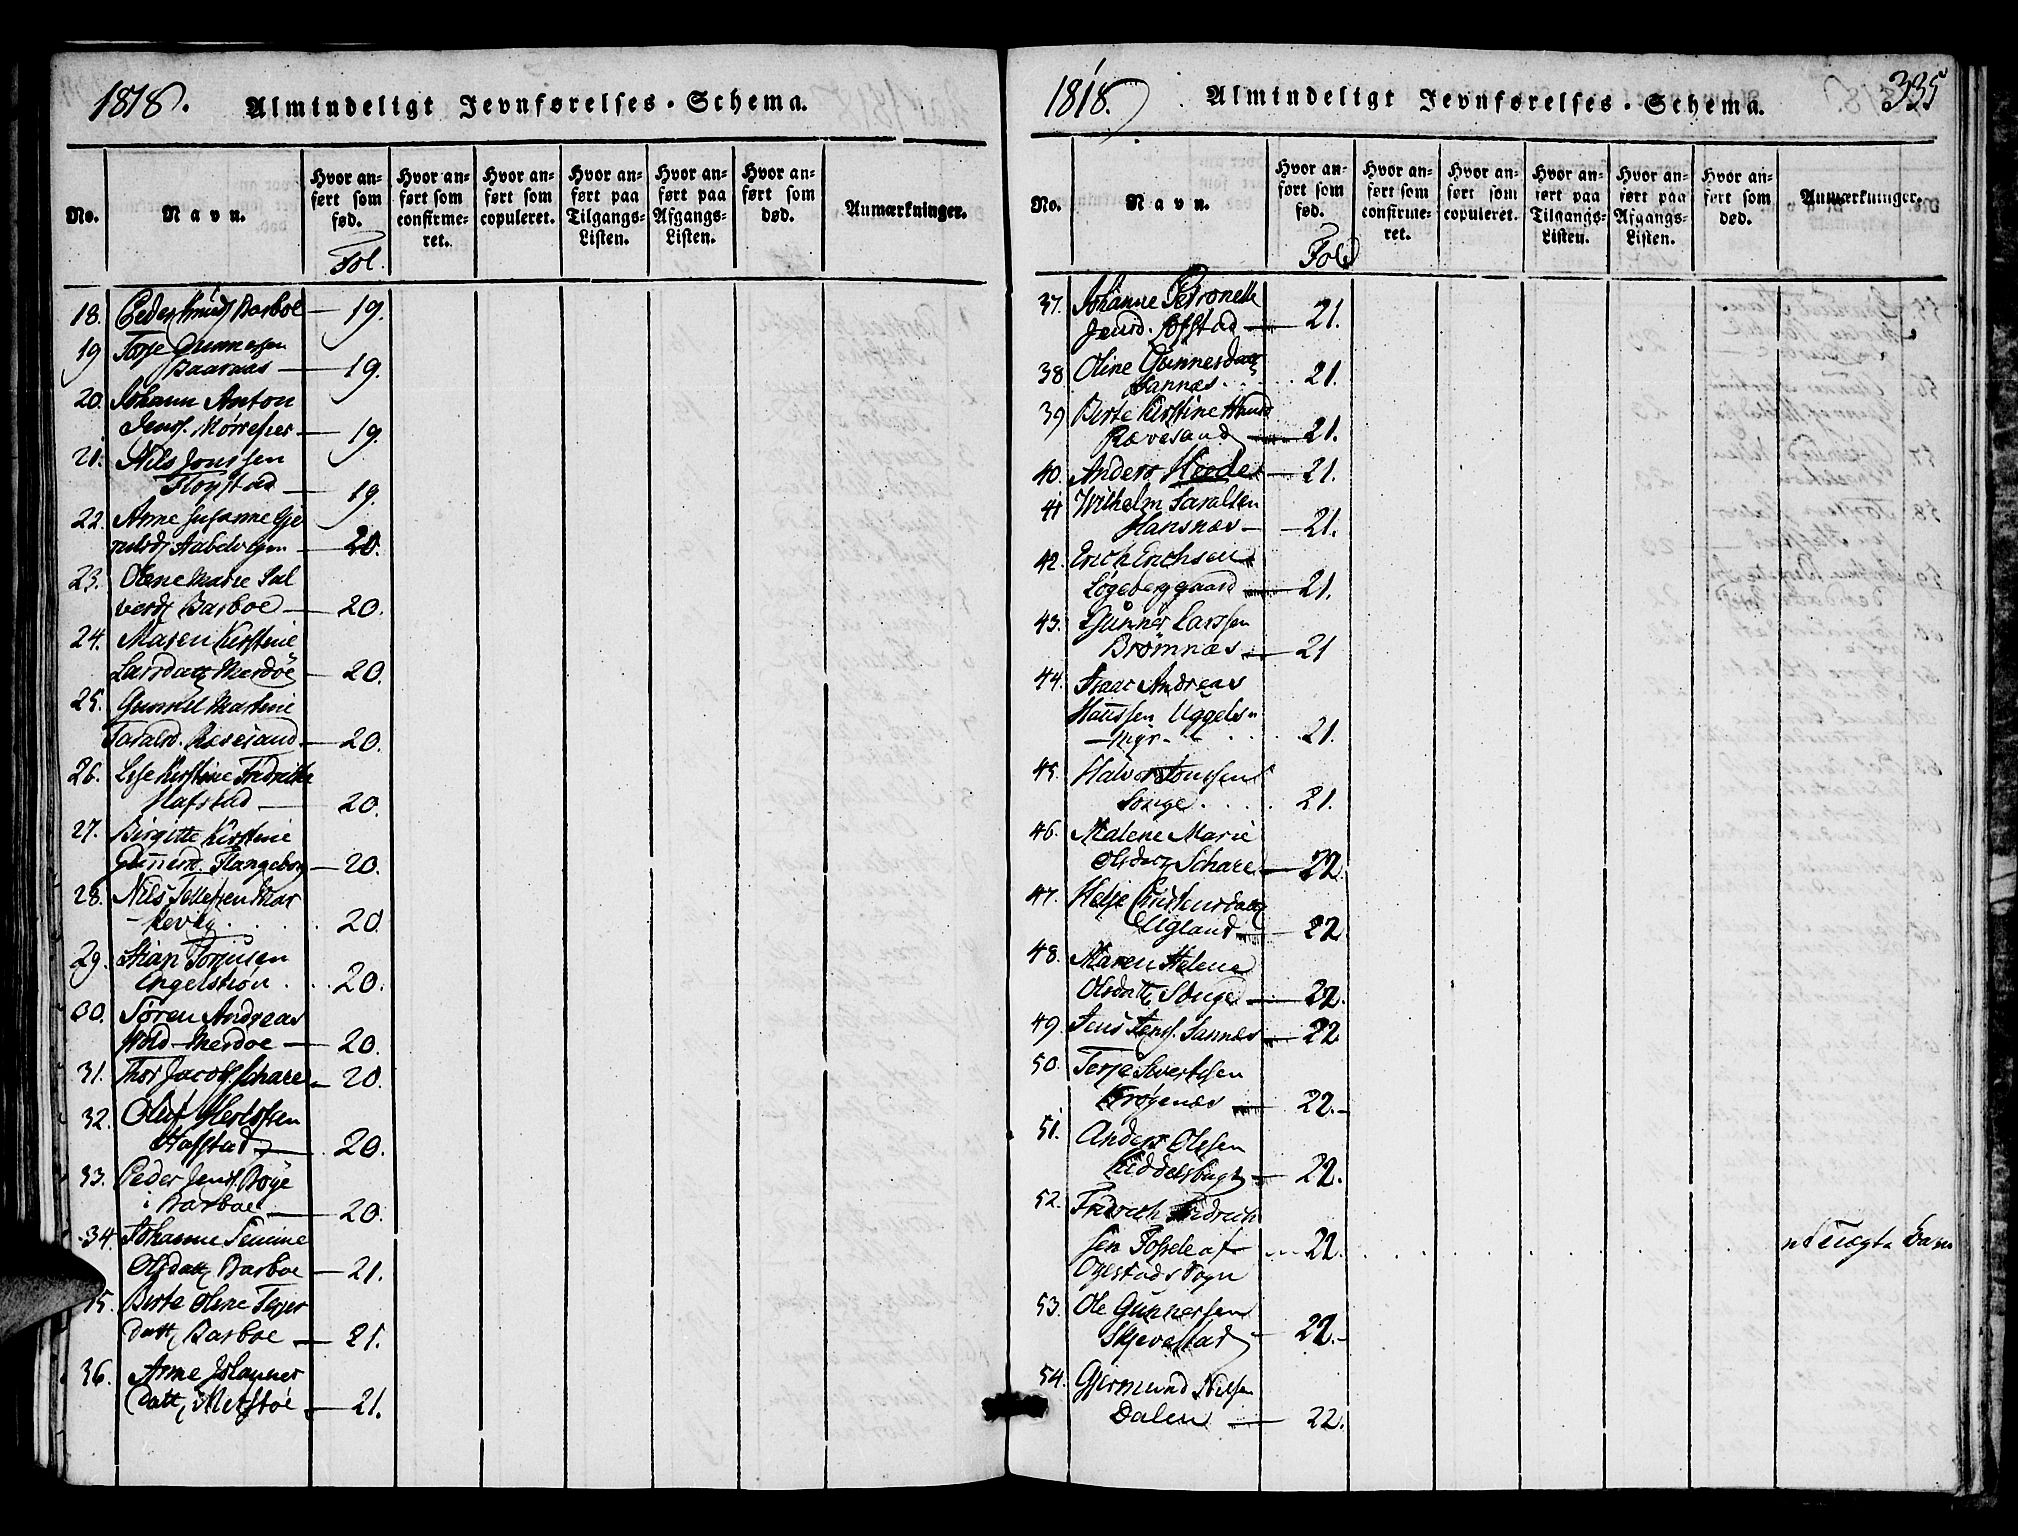 1818. Almindeligt Jevnførelses-Schema.
No.
Navn.
Hvor anført som fød.
Hvor anført som confirmeret.
Hvor anført som copuleret.
Hvor anført paa Tilgangs-Listen.
Hvor anført paa Afgangs-Listen.
Hvor anført som død.
Anmærkninger.
Fol.
18. Peder Knuds Barboe — 19.
19 Torje Gunnersen
Baaraas — 19.
20. Johann Anton
Jens. Mørrefier — 19.
21. Nils Jonssen
Fløystad — 19.
22. Anne Susanne Gje
— 20.
23. Olene Marie Sal
versd Barboe — 20.
24. Maren Kirstine
Larsdatt Merdöe — 20.
25. Gunnil Martine
Tarald. Revesand — 20.
26. Lise Kirstine Fredrikke
Hafstad — 20.
27. Birgitte Kirstine
Gunnersd. Flangeborg — 20.
28. Nils Tellefsen Mar
- kevig . . . . 20.
29. Stian Torjusen
Engelstrøn . . . 20.
30. Søren Andreas
Hold - Merdøe — 20.
31. Thor Jacobs. Schare — 20.
32. Oluf
Hafstad — 20.
33. Peder Jens. Bøge
i Barboe — 20.
34. Johanne Semine
Olsdatt Barboe — 21.
35. Berte Olene Terjes
datt Barboe — 21.
36. Anne Johannes
datt — 21.
1818. Almindeligt Jevnførelses-Schema. 335
No.
Navn.
Hvor anført som fød.
Hvor anført som confirmeret.
Hvor anført som copuleret.
Hvor anført paa Tilgangs-Listen.
Hvor anført paa Afgangs-Listen.
Hvor anført som død.
Anmærkninger.
Fol
37. Johanne Petronelle
Jensd. Lofstad — 21.
38 Oline Gunnersdatt
Sannæs . . . . 21.
39 Berte Kirstine Hansd
Rævesand — 21.
40. Anders — 21.
41 Wilhelm Saralsen
Hansnæs — 21.
42. Erich Erichsen
Løgeberggaard — 21.
43. Gunner Larssen
Brømnæs — 21
44. Isaac Andreas
Hanssen Uggels
- myr - . . . 21.
45. Halvor Tonssen
Songe . . . . 21.
46. Malene Marie
Olsdatt Schare — 22.
47. Helje
Ugland — 22.
48. Maren Helene
Olsdatt Songe — 22.
49. Jens Jens. Sannæs — 22.
50. Terje Sivertsen
Krøgenæs — 22. -
51. Anders Olssen
Kiddelsbugt — 22.
52. Fridrich Fridrich
sen Fosse af . . . 22 . . . . . . . . uægte Barn
Øyestads Sogn
53. Ole Gunnersen
Skjevestad — 22. -
54. Gjermund Nilsen
Dalen — 22.